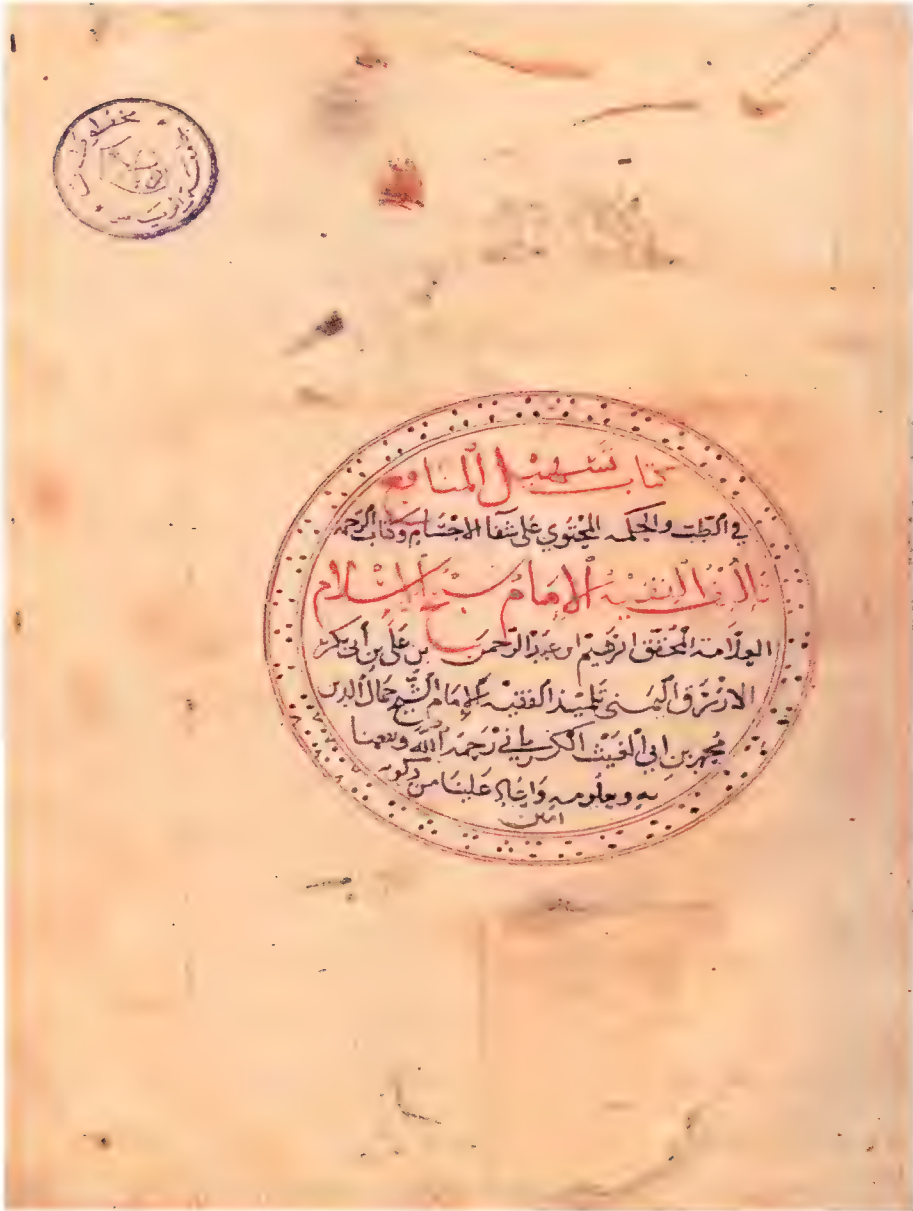 كتاب تسهيل المنافع
في الطب والحكمه المحتوي على شفا الاجسام وكتاب الرحمه
تأليف الفقيه الإمام شيخ الإسلام
العلامة المحقق ابرهيم ابن عبد الرحمن بن علي بن أبي بكر
الازرق اليمني تلميذ الفقيه الإمام الشيخ جمال الدين
محمد بن ابي الغيث الكمراني رحمه الله ونفعنا
به وبعلومه واعاد علينا من بركته
امين